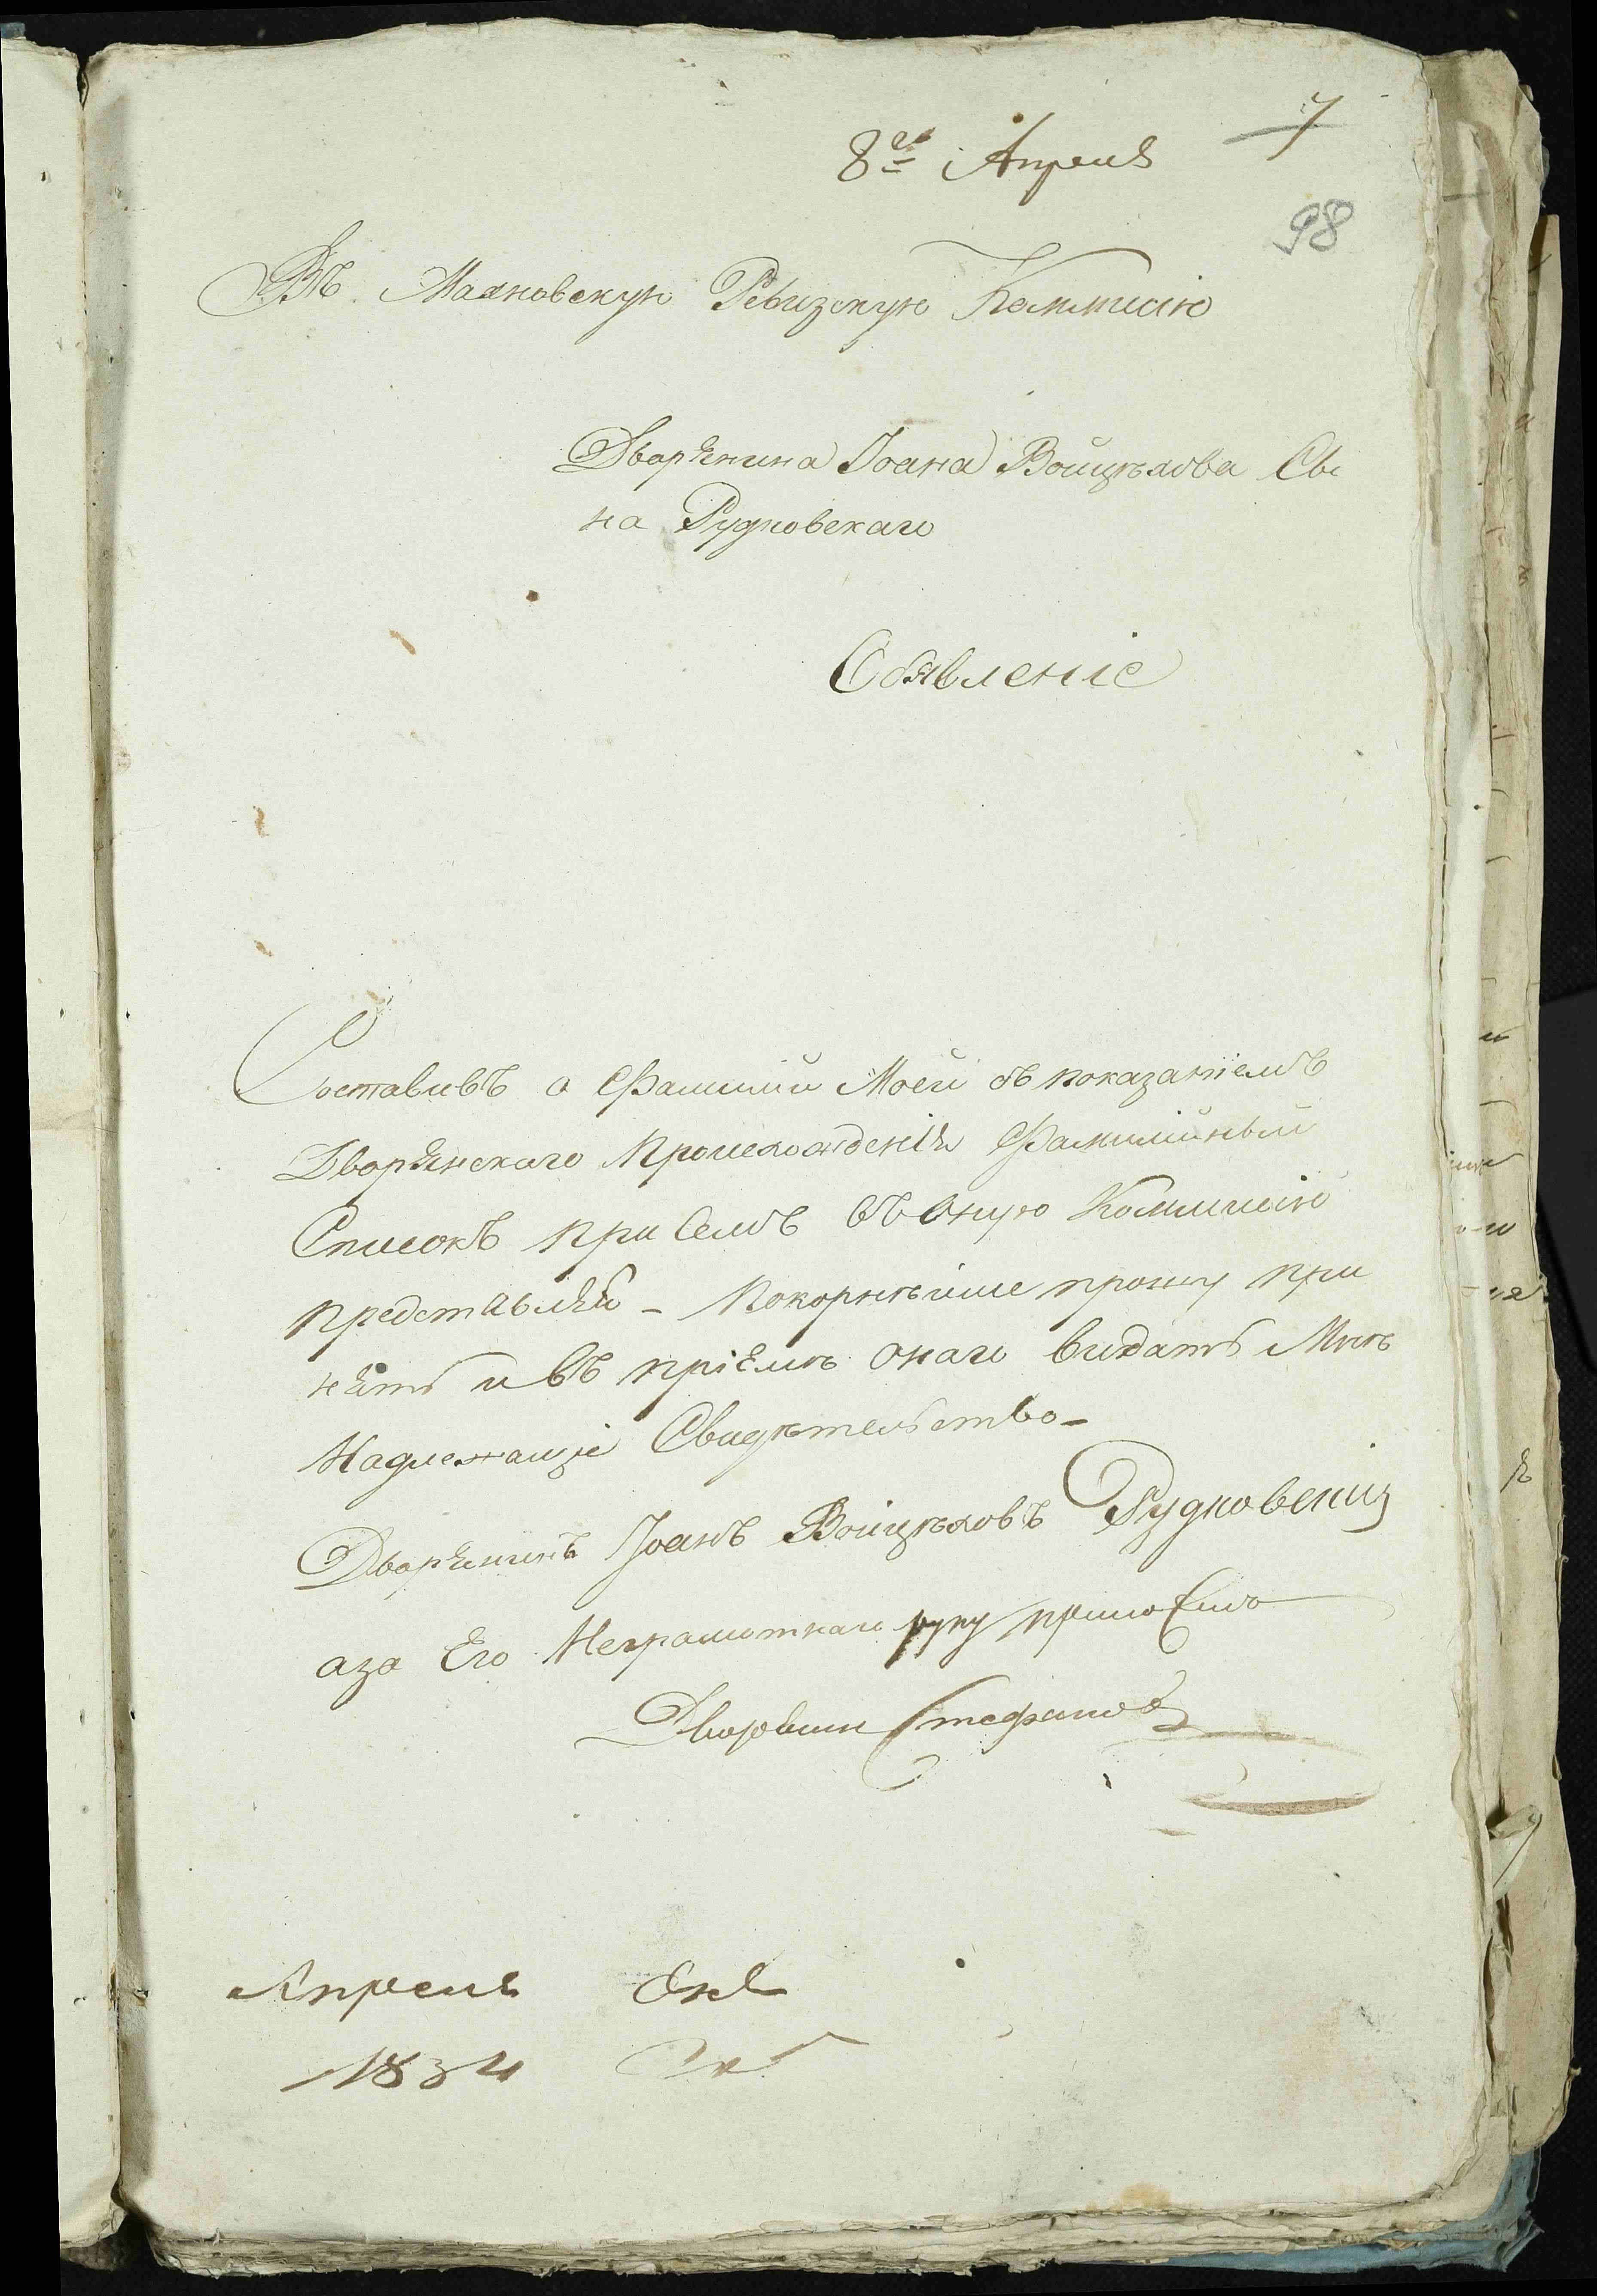 8го Апреля
7
98
Въ Махновскую Ревизскую Коммисію
Дворянина Іоана Войцѣхова Сы
на Рудковскаго
Обявленіе
Составивъ о Фамилій Моей съ показаніемъ
Дворянскаго Происхожденія Фамилійный
Списокъ при Семъ въ Оную Коммисію
представляя – покорнѣйше прошу при
нять и въ пріемѣ онаго видать Мнѣ
Надлежащіе Свидѣтельство –
Дворянинъ Іоанъ Войцѣховъ Рудковскій
аза Его Неграмотнаго руку приложилъ
Дворянин
Апреля
1834